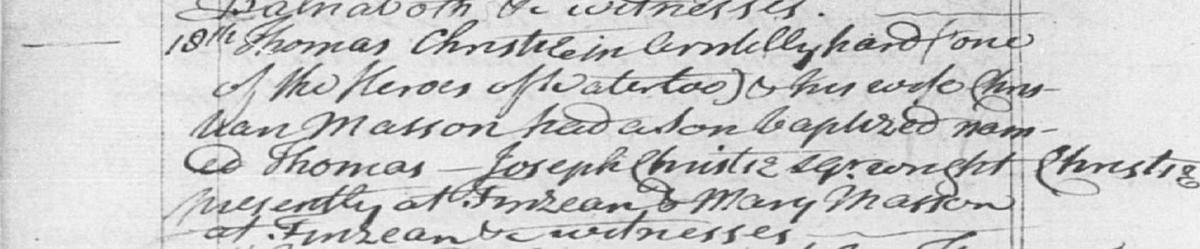 Balnaboth &c witnesses.
18th Thomas Christie in hard (one
of the Heroes of Waterloo) & his wife Chris-
tian Masson had a son baptized nam-
ed Thomas — Joseph Christie sqr. wright Christie
presently at Finzean & Mary Masson
at Finzean &c witnesses